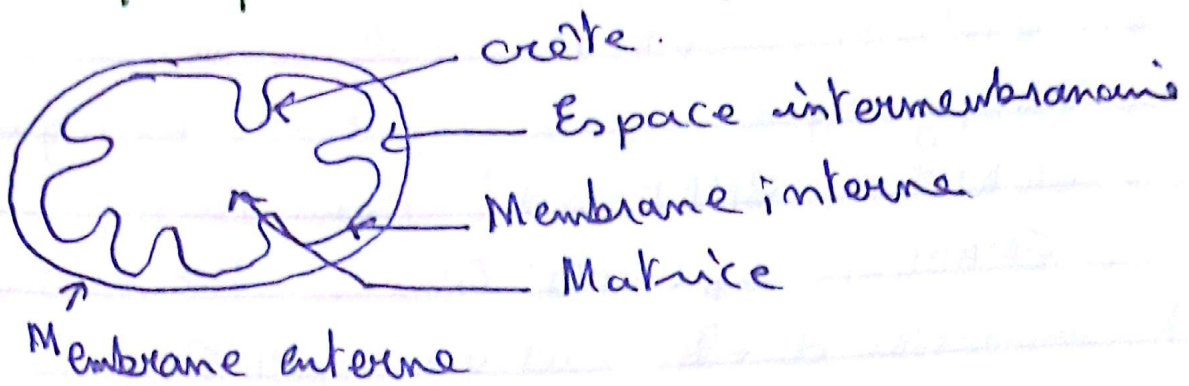 crête.
Espace intermembranaire
Membrane interne
Matrice
Membrane externe